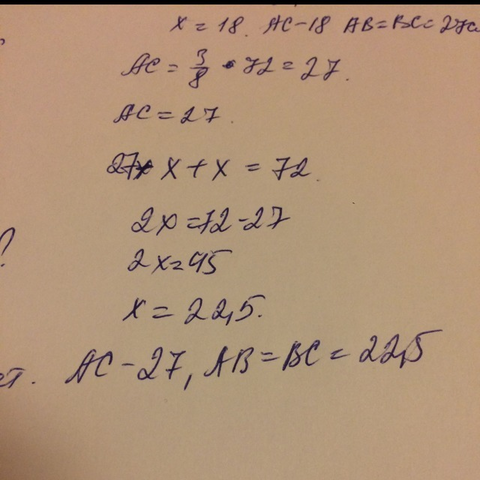 x = 18. AC-18 AB=BC=27с
AC = 3/8 · 72 = 27.
AC = 27.
27+ x + x = 72.
2x = 72-27
2x = 45
x = 22,5.
AC-27, AB=BC=22,5